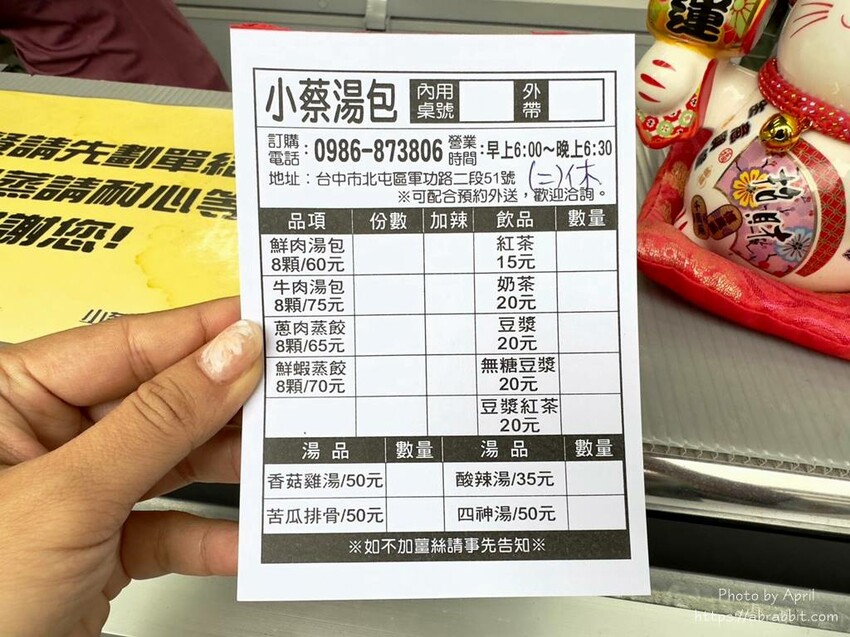 小蔡湯包 內用桌號 外帶
訂購電話：0986-873806 營業時間：早上6:00～晚上6:30
地址：台中市北屯區軍功路二段51號 (二)休
※可配合預約外送，歡迎洽詢。
品項 份數 加辣 飲品 數量
鮮肉湯包 紅茶
8顆/60元 15元
牛肉湯包 奶茶
8顆/75元 20元
蔥肉蒸餃 豆漿
8顆/65元 20元
鮮蝦蒸餃 無糖豆漿
8顆/70元 20元
豆漿紅茶
20元
湯品 數量 湯品 數量
香菇雞湯/50元 酸辣湯/35元
苦瓜排骨/50元 四神湯/50元
※如不加薑絲請事先告知※
請先劃單
蒸請耐心等
謝您!
運
Photo by April
https://abrabbit.com